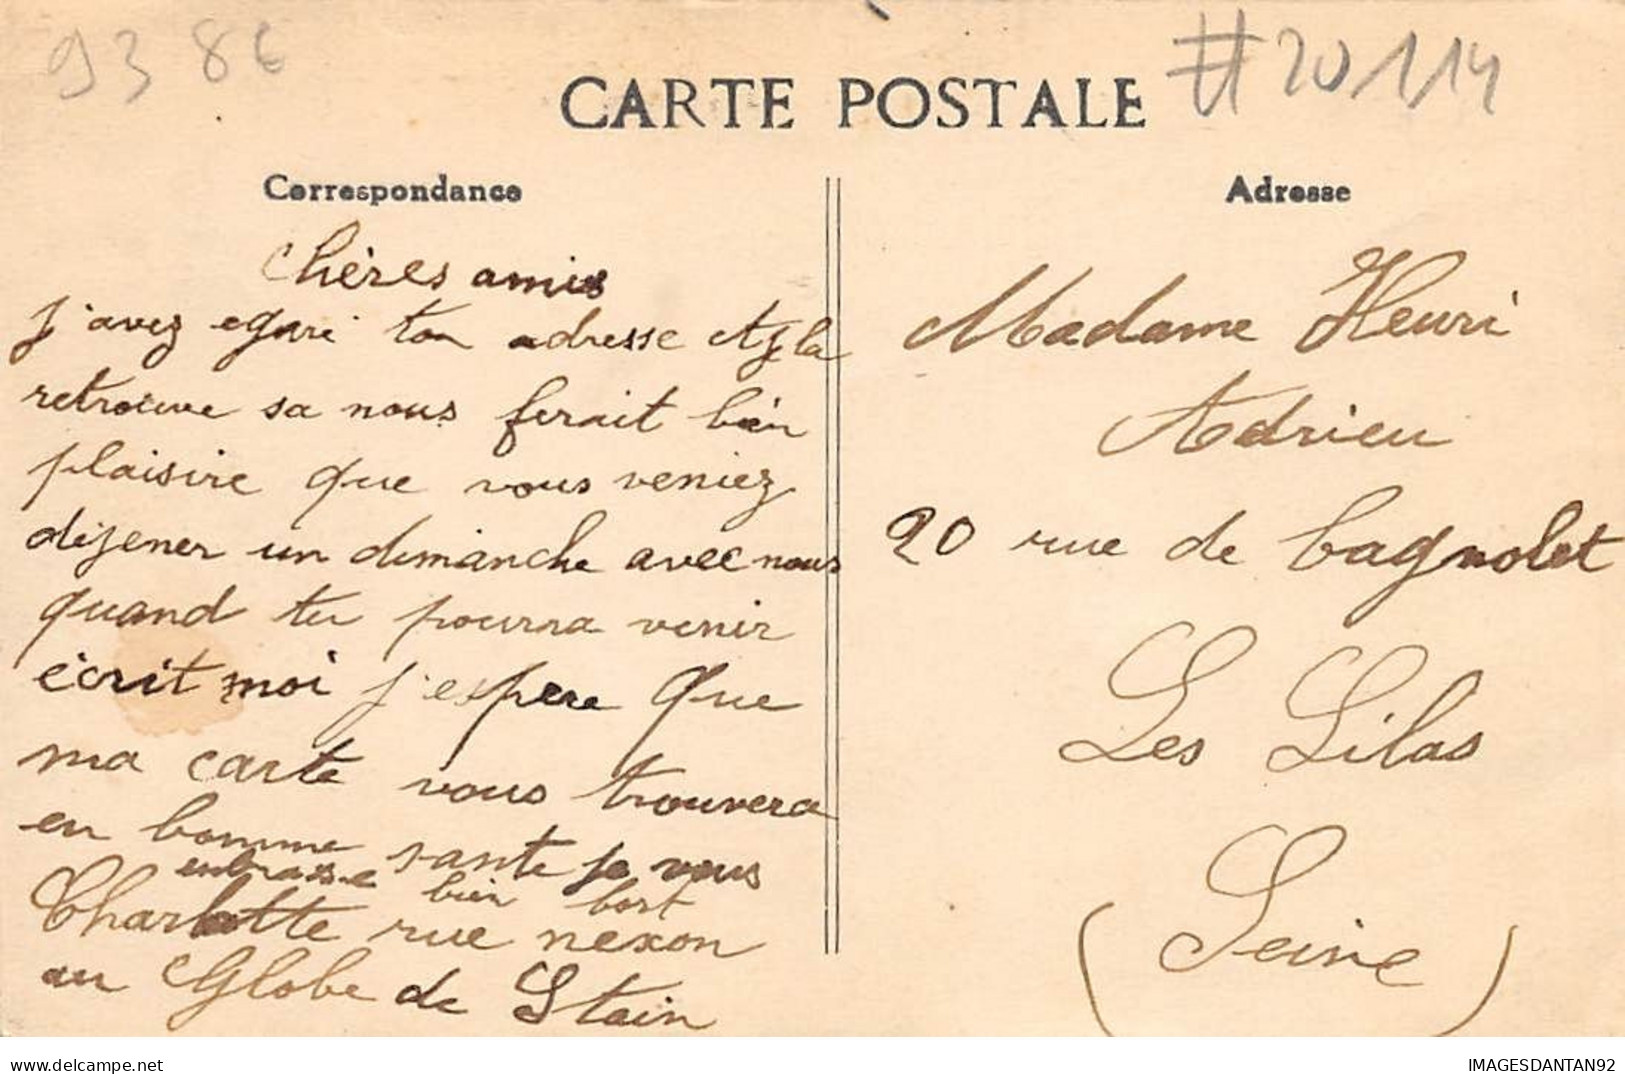 93 8€
#20114
CARTE POSTALE
Correspondance
chères amies
j'avez egaré ton adresse
retrouve sa nous ferait bien
plaisire que vous veniez
déjener un dimanche avec nous
quand tu pourra venir
écrit moi j'espere que
ma carte vous trouvera
en bomme sante je vous
embrasse bien fort
Charlotte rue nexon
au Globe de Stain
Adresse
Madame Henri
Adrien
20 rue de bagnolet
Les Lilas
(Seine)
delcampe.net
IMAGESDANTAN92